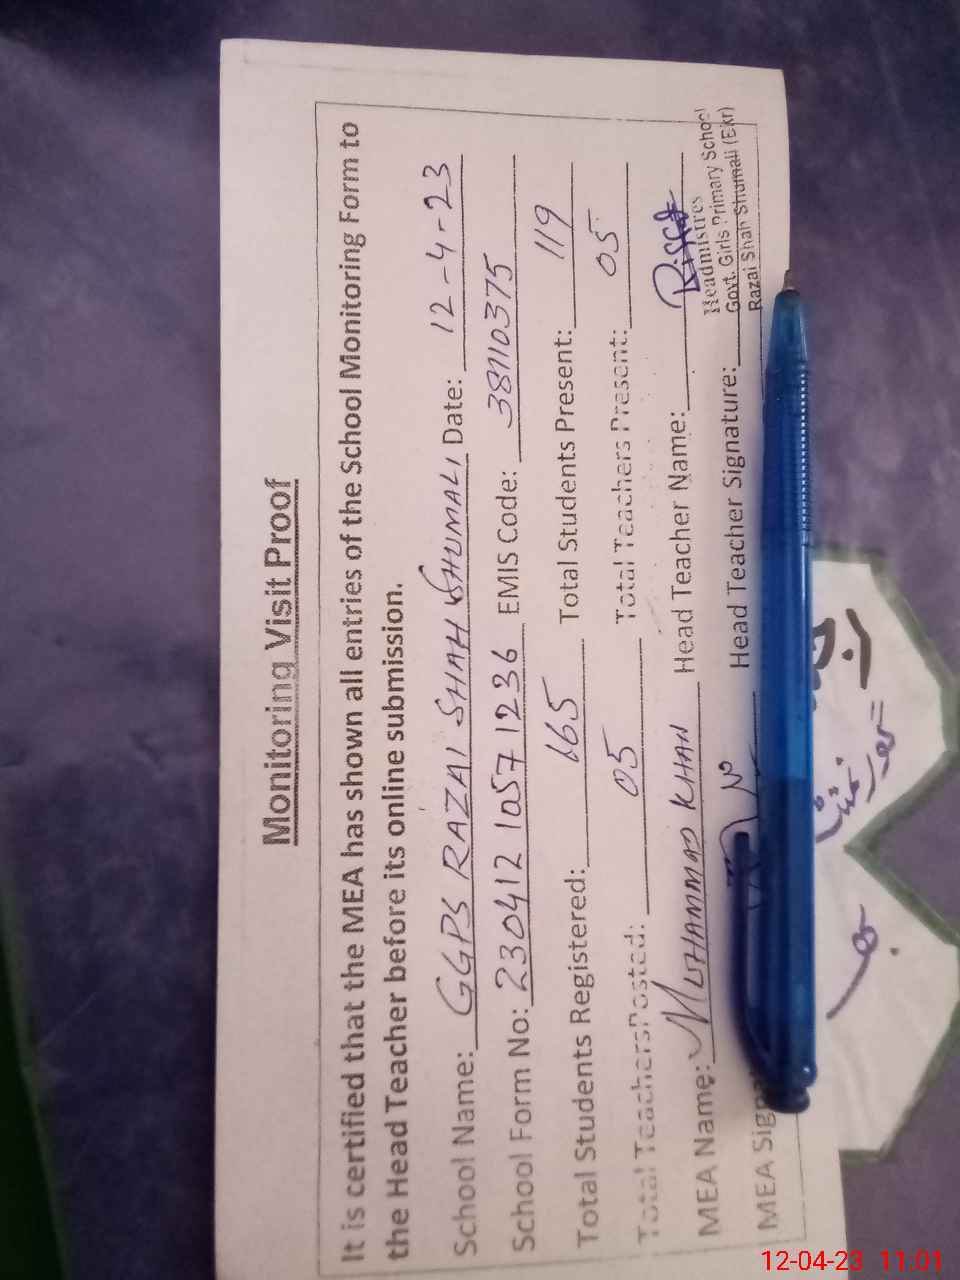 Monitoring Visit Proof
It is certified that the MEA has shown all entries of the School Monitoring Form to
the Head Teacher before its online submission.
School Name: GGPS RAZAI SHAH SHUMALI Date: 12-4-23
School Form No: 230412 1057 1236 EMIS Code: 38110375
Total Students Registered: 165 Total Students Present: 119
Total Teachers Posted: 05 Total Teachers Present: 05
MEA Name: MUHAMMAD KHAN Head Teacher Name:
MEA Head Teacher Signature:
Headmistres
Govt. Girls Primary School
Razai Shah Shumali
12-04-23 11:01